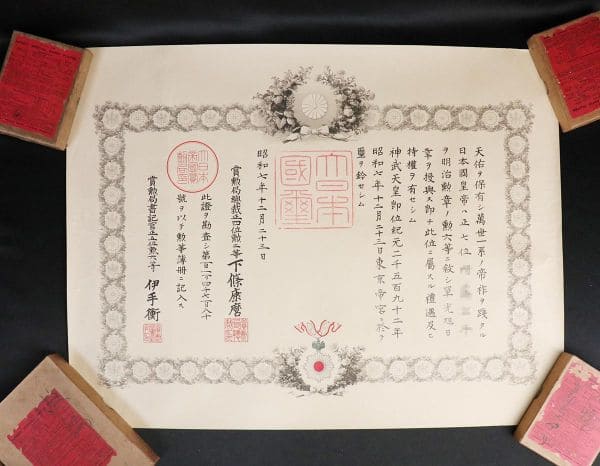 天佑ヲ保有シ萬世一系ノ帝祚ヲ踐タル
日本國皇帝ハ正七位
ヲ明治勲章ノ勲六等ニ敍シ單光旭日
章ヲ授與ス即チ此位ニ屬スル禮遇及ヒ
特權ヲ有セシム
神武天皇即位紀元二千五百九十二年
昭和七年十二月二十三日東京帝宮ニ於テ
璽ヲ鈐セシム
大日本
國璽
昭和七年十二月二十三日
賞勲局總裁正四位勲二等下條康麿
此證ヲ勘査シ第百
號ヲ以テ勲等簿冊ニ記入ス
賞勲局書記官正五位勲六等 伊手衡